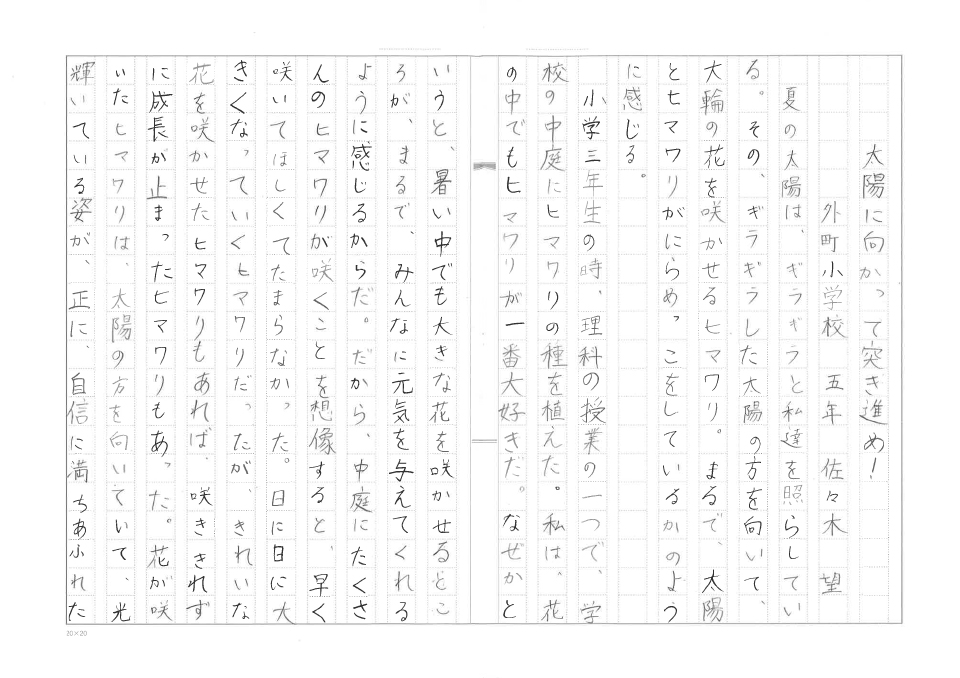 太陽に向かって突き進め！
外町小学校　五年　佐々木　望
夏の太陽は、ギラギラと私達を照らしてい
る。その、ギラギラした太陽の方を向いて、
大輪の花を咲かせるヒマワリ。まるで、太陽
とヒマワリがにらめっこをしているかのよう
に感じる。
小学三年生の時、理科の授業の一つで、学
校の中庭にヒマワリの種を植えた。私は、花
の中でもヒマワリが一番大好きだ。なぜかと
いうと、暑い中でも大きな花を咲かせるとこ
ろが、まるで、みんなに元気を与えてくれる
ように感じるからだ。だから、中庭にたくさ
んのヒマワリが咲くことを想像すると、早く
咲いてほしくてたまらなかった。日に日に大
きくなっていくヒマワリだったが、きれいな
花を咲かせたヒマワリもあれば、咲ききれず
に成長が止まったヒマワリもあった。花が咲
いたヒマワリは、太陽の方を向いていて、光
輝いている姿が、正に、自信に満ちあふれた
20×20